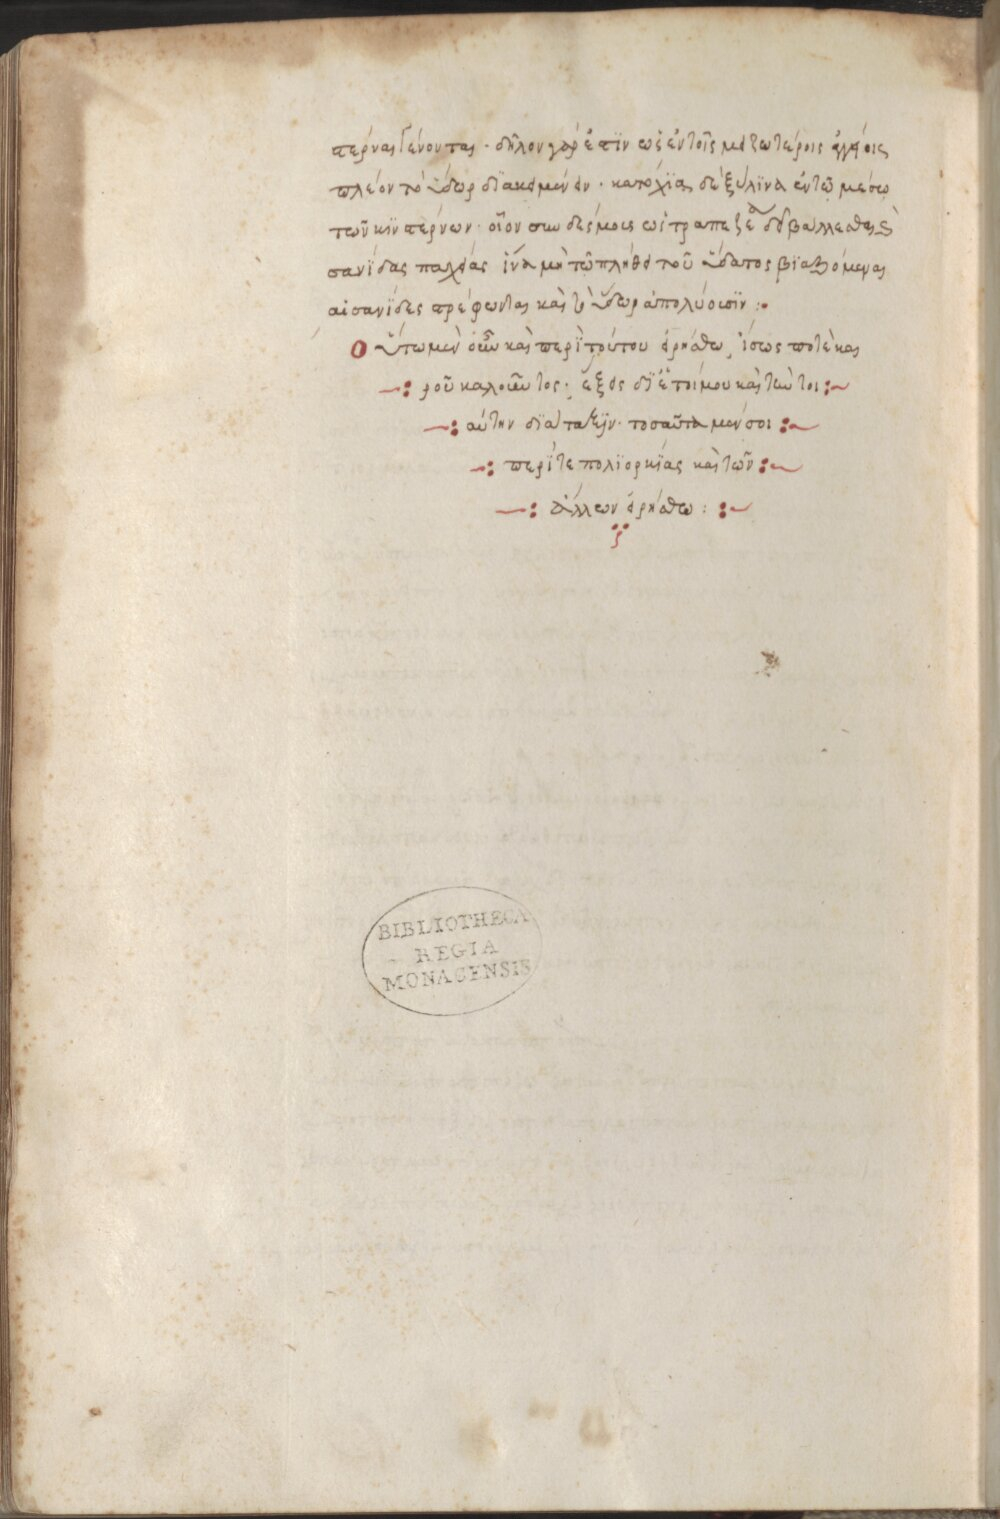 στέρνας γένονται· δῆλον γάρ ἐστὶν ὡς ἐν τοῖς μειζωτέροις ἀγγείοις
πλέον τὸ ὕδωρ διακειμένον· δὲ ξύλινα ἐν τῷ μέσῳ
τῶν κινστέρνων· οἷον συνδεσμοις ὡς τραπέζαι
σανίδας παχείας ἵνα μὴ τῶ πλήθει τοῦ ὕδατος βιαζόμεναι
αἱ σανίδες στρέφωνται καὶ τὸ ὕδωρ ἀπολύουσϊν :
Οὕτω μὲν οὖν καὶ περὶ τούτου εἰρήσθω, ἴσως ποτὲ και
ροῦ καλοῦντος· ἕξεις δι' ἑτοίμου καὶ τὴν τοι
αύτην διάταξιν· τοσαῦτα μέν σοι
περί τε πολϊορκίας καὶ τῶν
ἄλλων εἰρήσθω :
BIBLIOTHECA
REGIA
MONACENSIS